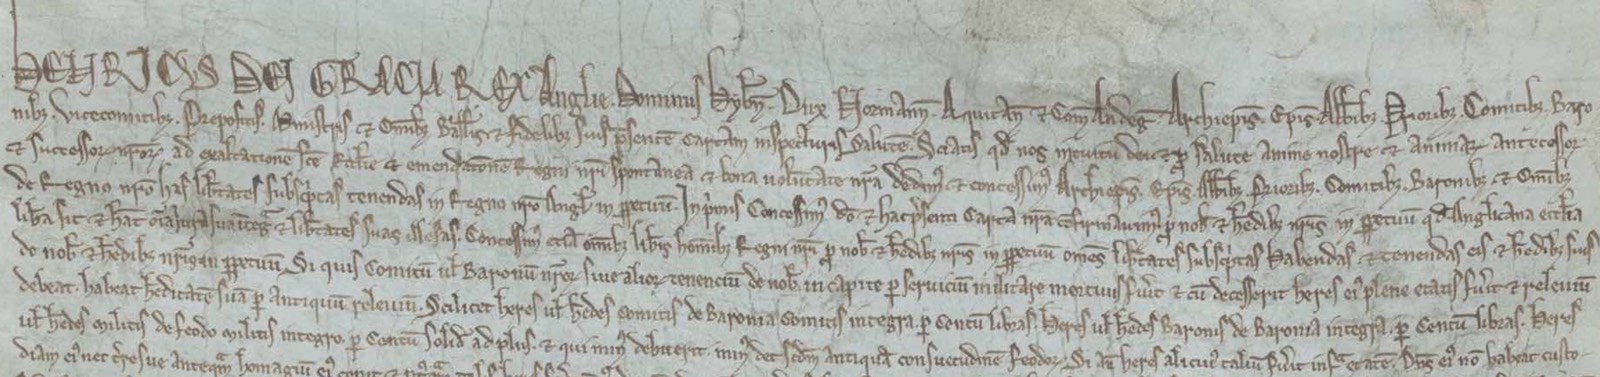 HENRICUS DEI GRACIA REX Anglie. Dominus Hybn. Dux Normann. Aquitan et Com Andeg. Archiepis. Epis. Abbibz. Prioribz. Comitibz. Baro
nibz. Vicecomitibz. Prepositis. Ministris et Omibz Ballis et fidelibz suis psentem Cartam inspecturis Salutem. Sciatis qd nos intuitu dei et p salute anime nostre et animar antecessor
et successor nror ad exaltationem sce Ecclie et emendatonem Regni nri spontanea et bona voluntate nra dedim et concessim Archiepis. Epis. Abbibz. Prioribz. Comitibz. Baronibz et Omibz
de Regno nro has libtates subscptas tenendas in Regno nro Angl in ppetuum. In pmis Concessim do et hac psenti Carta nra confirmavim p nob et hedibz nris in ppetuum qd Anglicana ecclia
liba sit et heat oia jura sua integ et libtates suas illesas. Concessim etia omibz libis hominibz Regni nri p nob et hedibz nris in ppetuum omes libtates subscptas habendas et tenendas eis et hedibz suis
de nob et hedibz nris in ppetuum. Si quis Comitum ul Baronum nror sive alior tenencium de nob in capite p servicium militare mortuus fuit et cu decesserit heres ei plene etatis fuit et relevium
debeat. habeat heditatem sua p antiquum relevium. Scilicet heres ul hedes comitis de Baronia Comitis integra. p Centum libras. Heres ul hedes Baronis de Baronia integra. p Centum libras. Heres
ul hedes militis de feodo militis integro. p Centum solid ad plus. et qui min debuerit. min det scdm antiqua consuetudinem feodor. Si aut heres alicui talium fuit infra etatem. Dns ei no habeat custo-
diam ei nec terre sue anteqm homagium ei